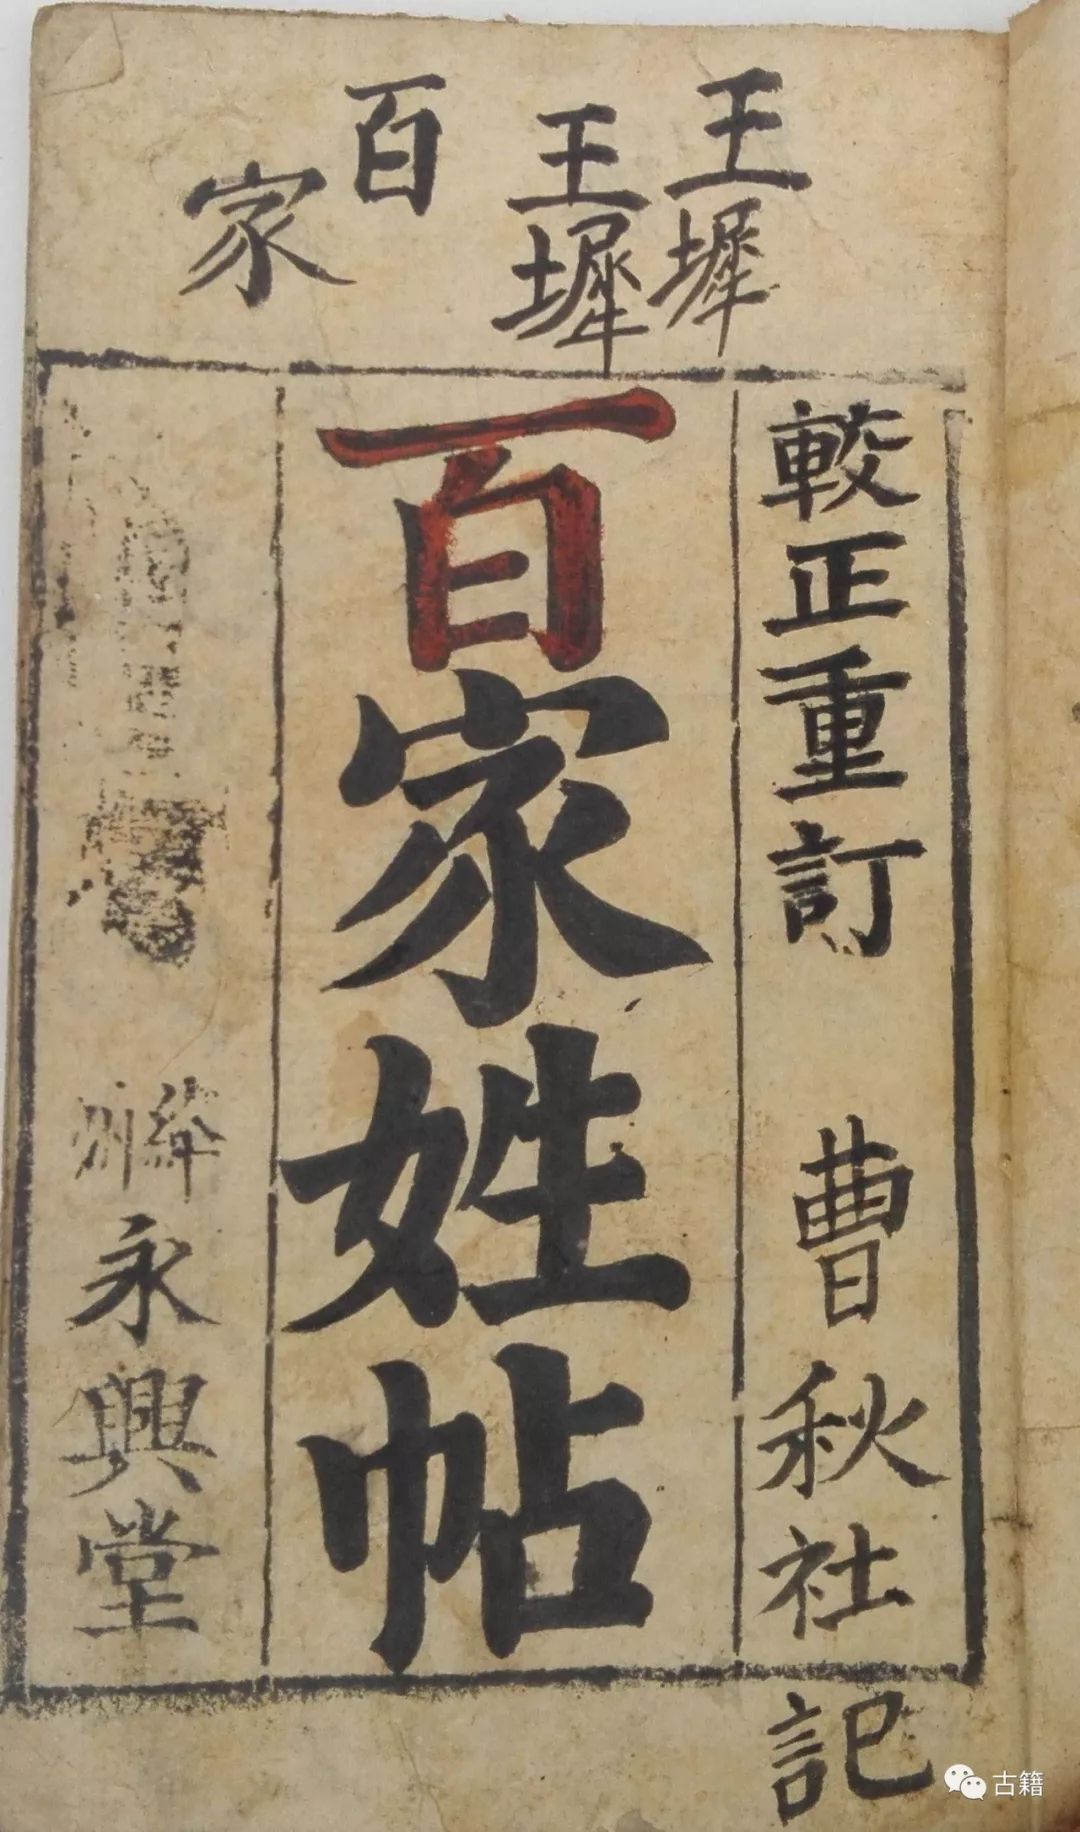 王墀
王墀
百
家
較正重訂
曹秋社記
百家姓帖
絳州永興堂
古籍